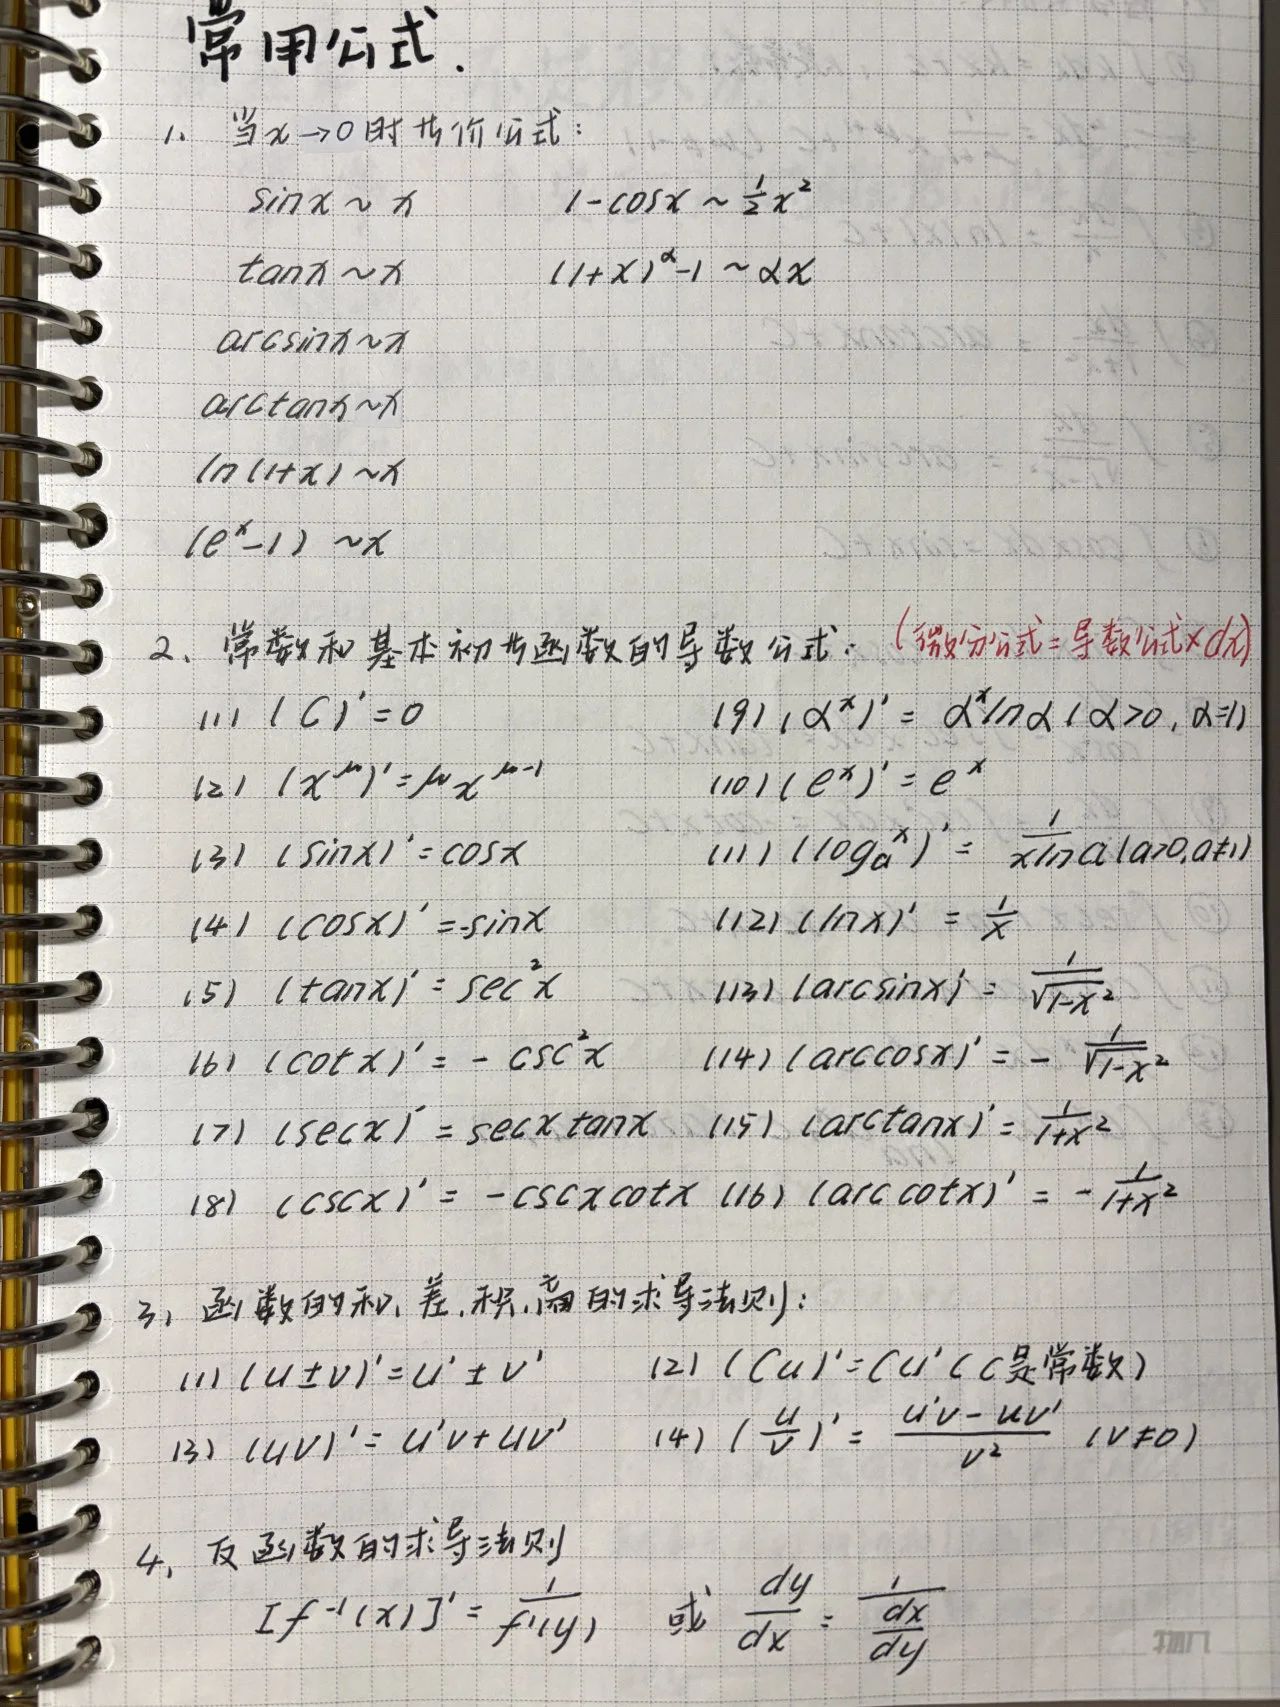 常用公式.
1、当x→0时等价公式:
sinx ~ x    1-cosx ~ ½x²
tanx ~ x    (1+x)^α-1 ~ αx
arcsinx ~ x
arctanx ~ x
ln(1+x) ~ x
(eˣ-1) ~ x
2、常数和基本初等函数的导数公式: (微分公式=导数公式×dx)
(1) (C)'=0    (9) (αˣ)' = αˣlnα (α>0, α=1)
(2) (x^μ)'=μx^(μ-1)    (10) (eˣ)'=eˣ
(3) (sinx)'=cosx    (11) (logₐˣ)' = 1/(xlna) (a>0,a≠1)
(4) (cosx)'=-sinx    (12) (lnx)' = 1/x
(5) (tanx)'=sec²x    (13) (arcsinx)' = 1/√(1-x²)
(6) (cotx)'=-csc²x    (14) (arccosx)' = -1/√(1-x²)
(7) (secx)'=secxtanx    (15) (arctanx)' = 1/(1+x²)
(8) (cscx)'=-cscxcotx    (16) (arccotx)' = -1/(1+x²)
3、函数的和、差、积、商的求导法则:
(1) (u±v)'=u'±v'    (2) (Cu)'=Cu' (C是常数)
(3) (uv)'=u'v+uv'    (4) (u/v)' = (u'v-uv')/v² (v≠0)
4、反函数的求导法则
[f⁻¹(x)]' = 1/f'(y)    或 dy/dx = 1/(dx/dy)